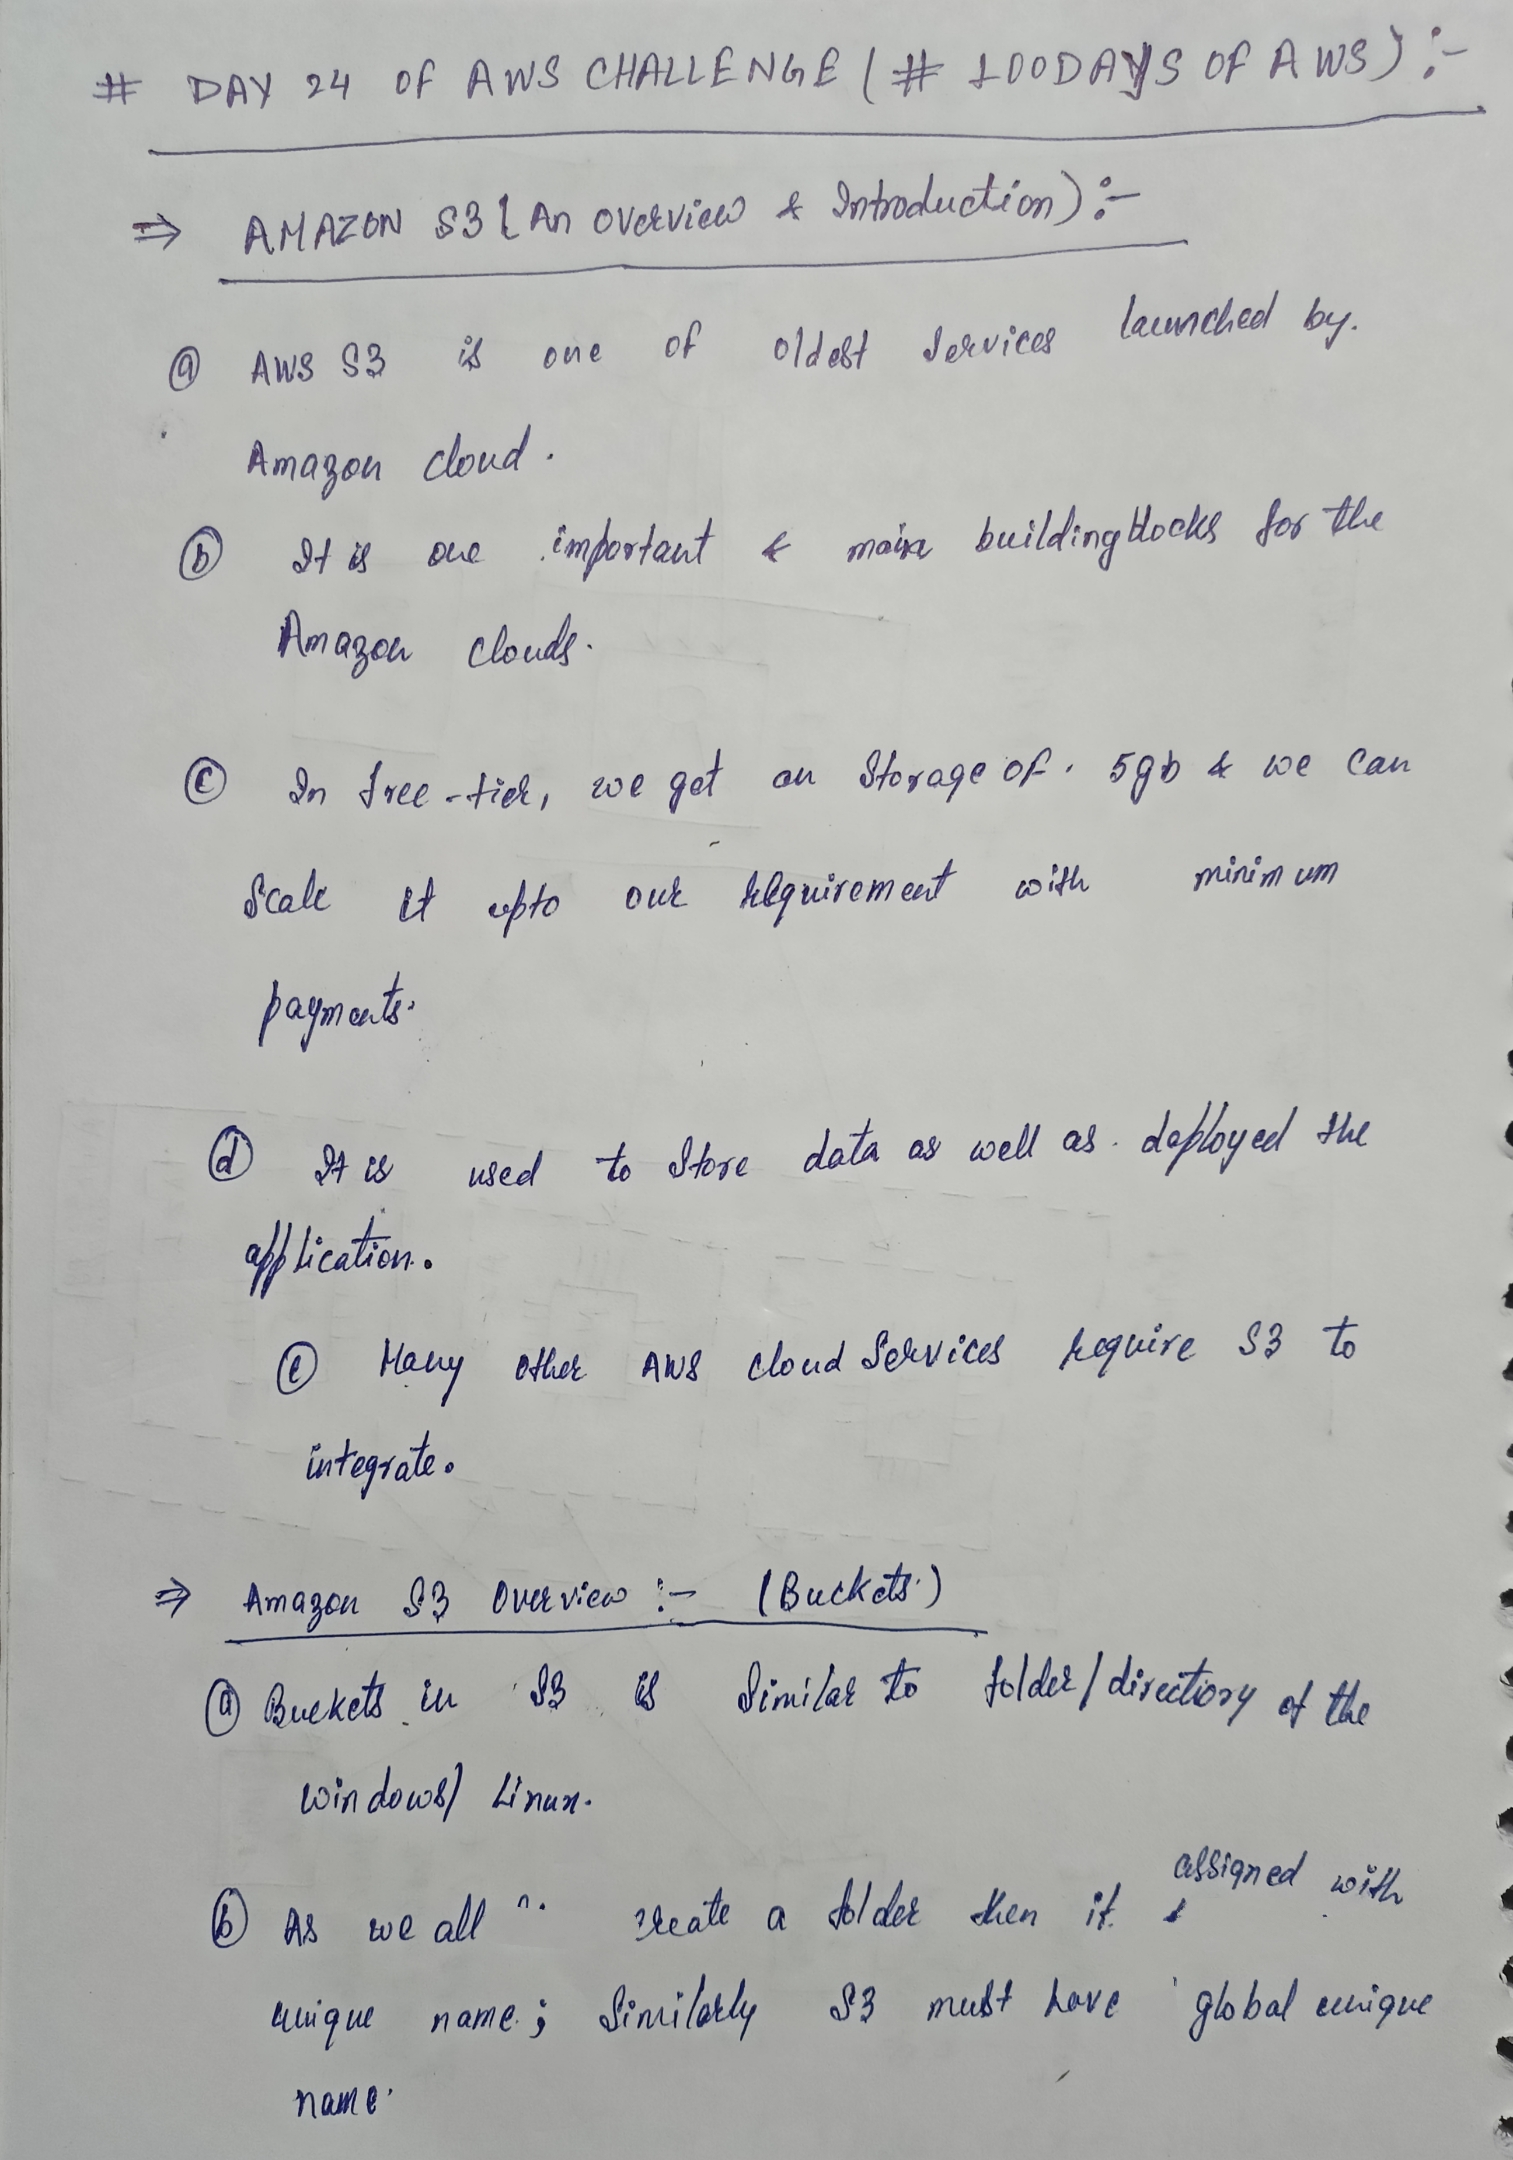 # DAY 24 OF AWS CHALLENGE (# 100DAYS OF AWS) :-
⇒ AMAZON S3 (An overview & Introduction) :-
ⓐ AWS S3 is one of oldest services launched by.
Amazon cloud.
ⓑ It is one important & main buildingblocks for the
Amazon clouds.
ⓒ In free-tier, we get an Storage of. 5gb & we can
Scale it upto our requirement with minimum
payments.
ⓓ It is used to store data as well as. deployed the
application.
ⓔ Many other AWS cloud Services require S3 to
integrate.
⇒ Amazon S3 Overview :- (Buckets)
ⓐ Buckets in S3 is Similar to folder/directiory of the
windows/ Linux.
ⓑ As we all create a folder then it assigned with
unique name; Similarly S3 must have global unique
name.